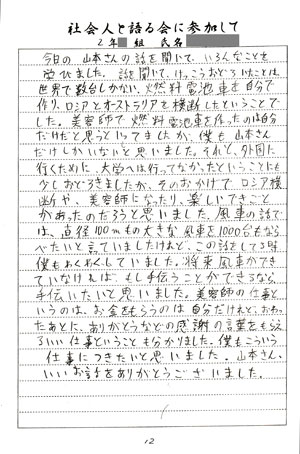 社会人と語る会に参加して
2年 組 氏名
今日の山本さんの話を聞いて、いろんなことを
学びました。話を聞いて、けっこうおどろいたことは、
世界で数台しかない、燃料電池車を自分で
作り、ロシアとオーストラリアを横断したということで
した。美容師で燃料電池車を作ったのは自分
だけだと思うといってましたが、僕も山本さん
だけしかいないと思いました。それと、外国に
行くために、大学へは行ってなかったということにも
少しおどろきましたが、そのおかげでロシア横
断や、美容師になったり、楽しいできごと
があったのだろうと思いました。風車の話で
は、直径100mもの大きな風車を1000台もなら
べたいと言っていましたけれど、この話をしてる時、
僕もわくわくしていました。将来風車ができ
ていなければ、もし手伝うことができるなら、
手伝いたいと思いました。美容師の仕事と
いうのは、お金をもらうのは自分だけれど、おわっ
たあとに、ありがとうなどの感謝の言葉をもらえ
るいい仕事ということも分かりました。僕もこういう
仕事につきたいと思いました。山本さん、
いいお話をありがとうございました。
12